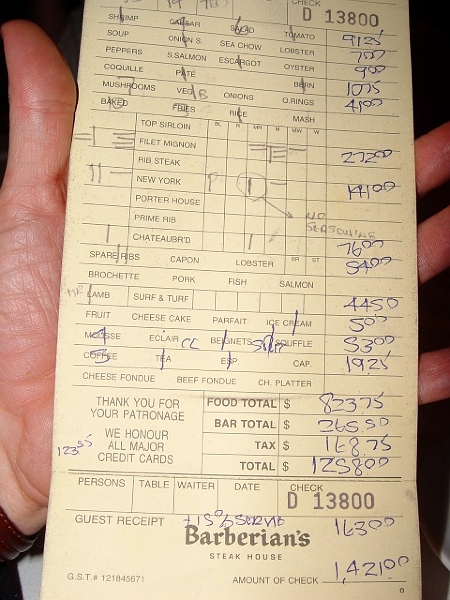 CHECK
D 13800
SHRIMP CAESAR SALAD TOMATO 9125
SOUP ONION S. SEA CHOW LOBSTER 700
PEPPERS S.SALMON ESCARGOT OYSTER 900
COQUILLE PATÉ BERN 1075
MUSHROOMS VEG B ONIONS O.RINGS 4100
BAKED FRIES RICE MASH
TOP SIRLOIN BL R MR M MW W
FILET MIGNON 27200
RIB STEAK
NEW YORK P 14100
PORTER HOUSE NO SEASONING
PRIME RIB
CHATEAUBR'D 7600
SPARE RIBS CAPON LOBSTER BR ST 5400
BROCHETTE PORK FISH SALMON
MR LAMB SURF & TURF 4450
FRUIT CHEESE CAKE PARFAIT ICE CREAM 500
MOUSSE ECLAIR CC BEIGNETS SOUFFLE 5300
COFFEE TEA ESP. CAP. 1925
CHEESE FONDUE BEEF FONDUE CH. PLATTER
THANK YOU FOR YOUR PATRONAGE
WE HONOUR ALL MAJOR CREDIT CARDS
FOOD TOTAL $ 82375
BAR TOTAL $ 265.50
TAX $ 168.75
TOTAL $ 125800
PERSONS TABLE WAITER DATE CHECK
D 13800
GUEST RECEIPT +15% 16300
Barberian's
STEAK HOUSE
G.S.T.# 121845671 AMOUNT OF CHECK 1,42100